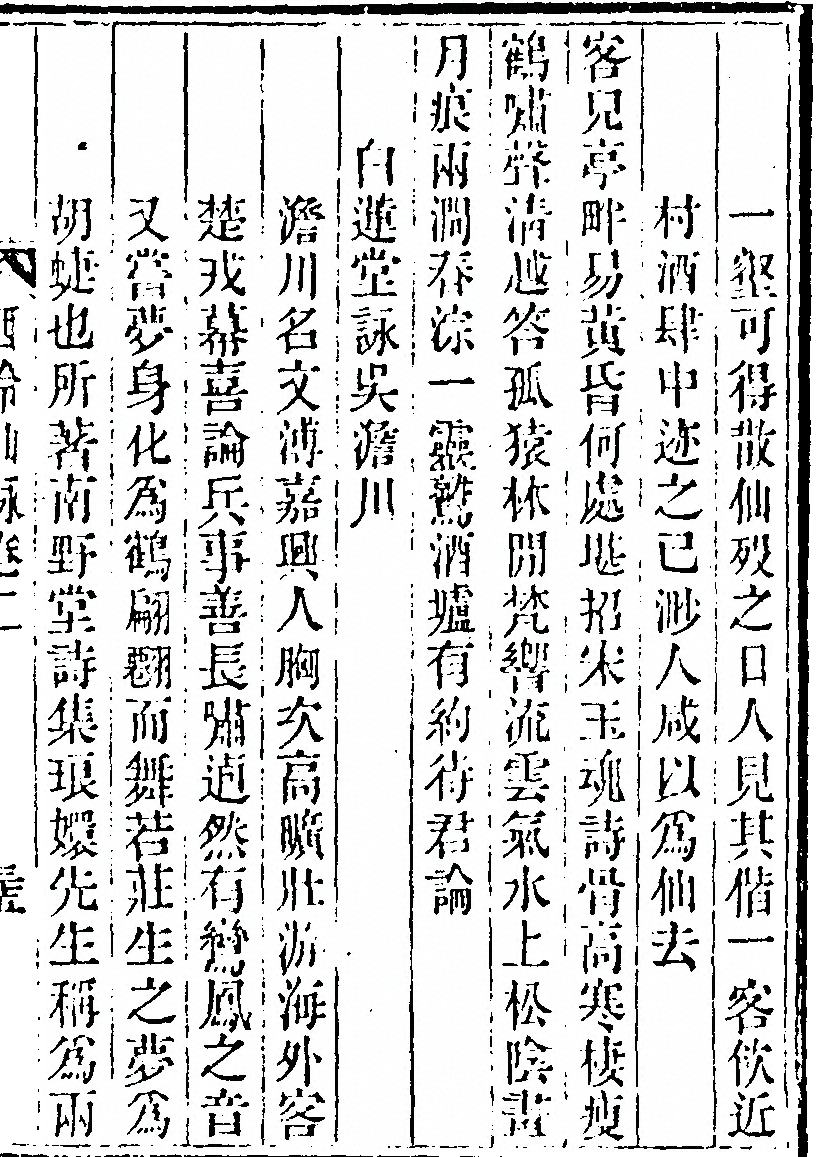 一壑可得散仙歿之日人見其偕一客飲近
村酒肆中迹之已渺人咸以爲仙去
客兒亭畔易黃昏何處堪招宋玉魂詩骨高寒棲瘦
鶴嘯聲淸越答孤猿林開梵響流雲氣水上松陰
月痕兩澗春淙一靈鷲酒壚有約待君論
白蓮堂詠吳澹川
澹川名文溥嘉興人胸次高曠壯游海外客
楚戎幕喜論兵事善長嘯逌然有鸞鳳之音
又嘗夢身化爲鶴翩翾而舞若莊生之夢爲
胡蜨也所著南野堂詩集琅嬛先生稱爲兩
西泠仙詠卷二